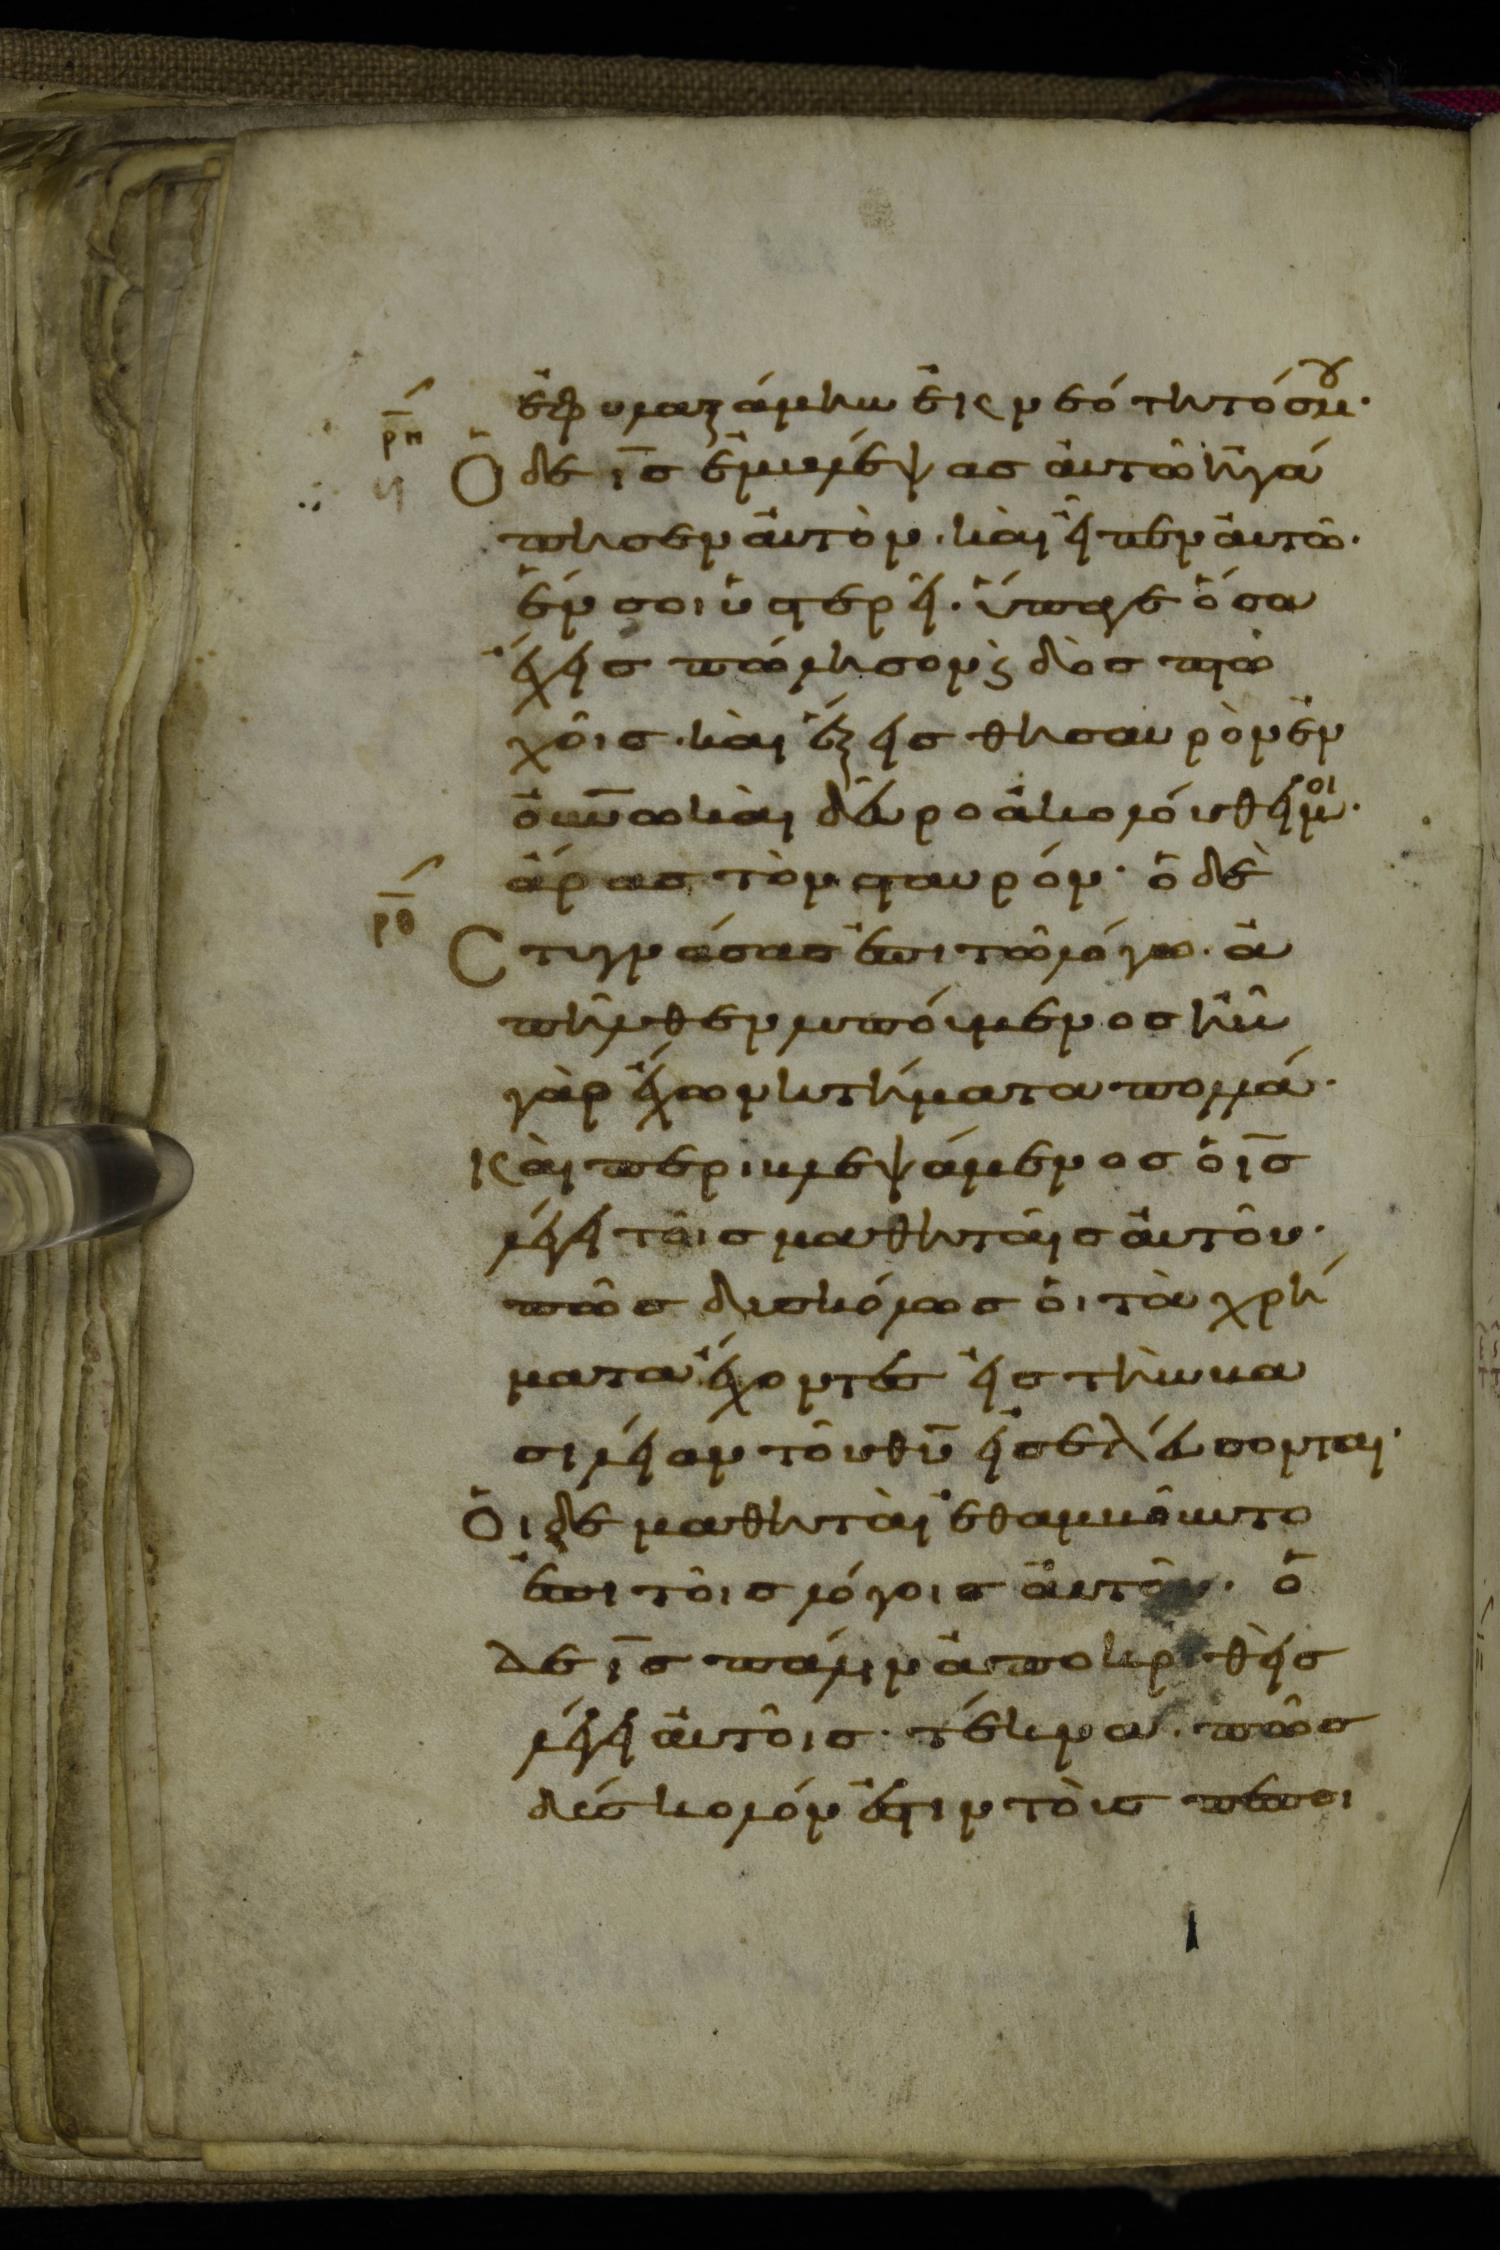 ἐφυλαξάμην ἐκ νεότητός μου.
ρη
Ὁ δε ις ἐμβλέψας ἀυτῶ ἠγά
πησεν ἀυτὸν. καὶ ἐῖπεν ἀυτῶ.
ἕν σοι ὑστερεῖ. ὕπαγε ὅσα
ἔχεις πώλησον κ δὸς πτω
χοῖς. καὶ ἕξεις θησαυρὸν ἐν
ὀυνω καὶ δεῦρο ἀκολούθει μοι.
ἄρας τὸν σταυρόν. ὁ δὲ
ρθ
Στυγνάσας ἐπι τῶ λόγω. ἀ
πῆλθεν λυπούμενος ἦν
γὰρ ἔχων κτήματα πολλά.
Καὶ περιβλεψάμενος ὁ ις
λέγει τοῖς μαθηταῖς ἀυτοῦ.
πῶς δυσκόλως ὁι τὰ χρή
ματα ἔχοντες ἐις τὴν βα
σιλείαν τοῦ θυ ἐισελεύσονται.
Ὁι δε μαθηταὶ ἐθαμβοῦντο
ἐπι τοῖς λόγοις ἀυτοῦ. ὁ
δε ις πάλιν ἀποκριθεὶς
λέγει ἀυτοῖς. τέκνα. πῶς
δύσκολόν ἐστιν τοὺς πεποι